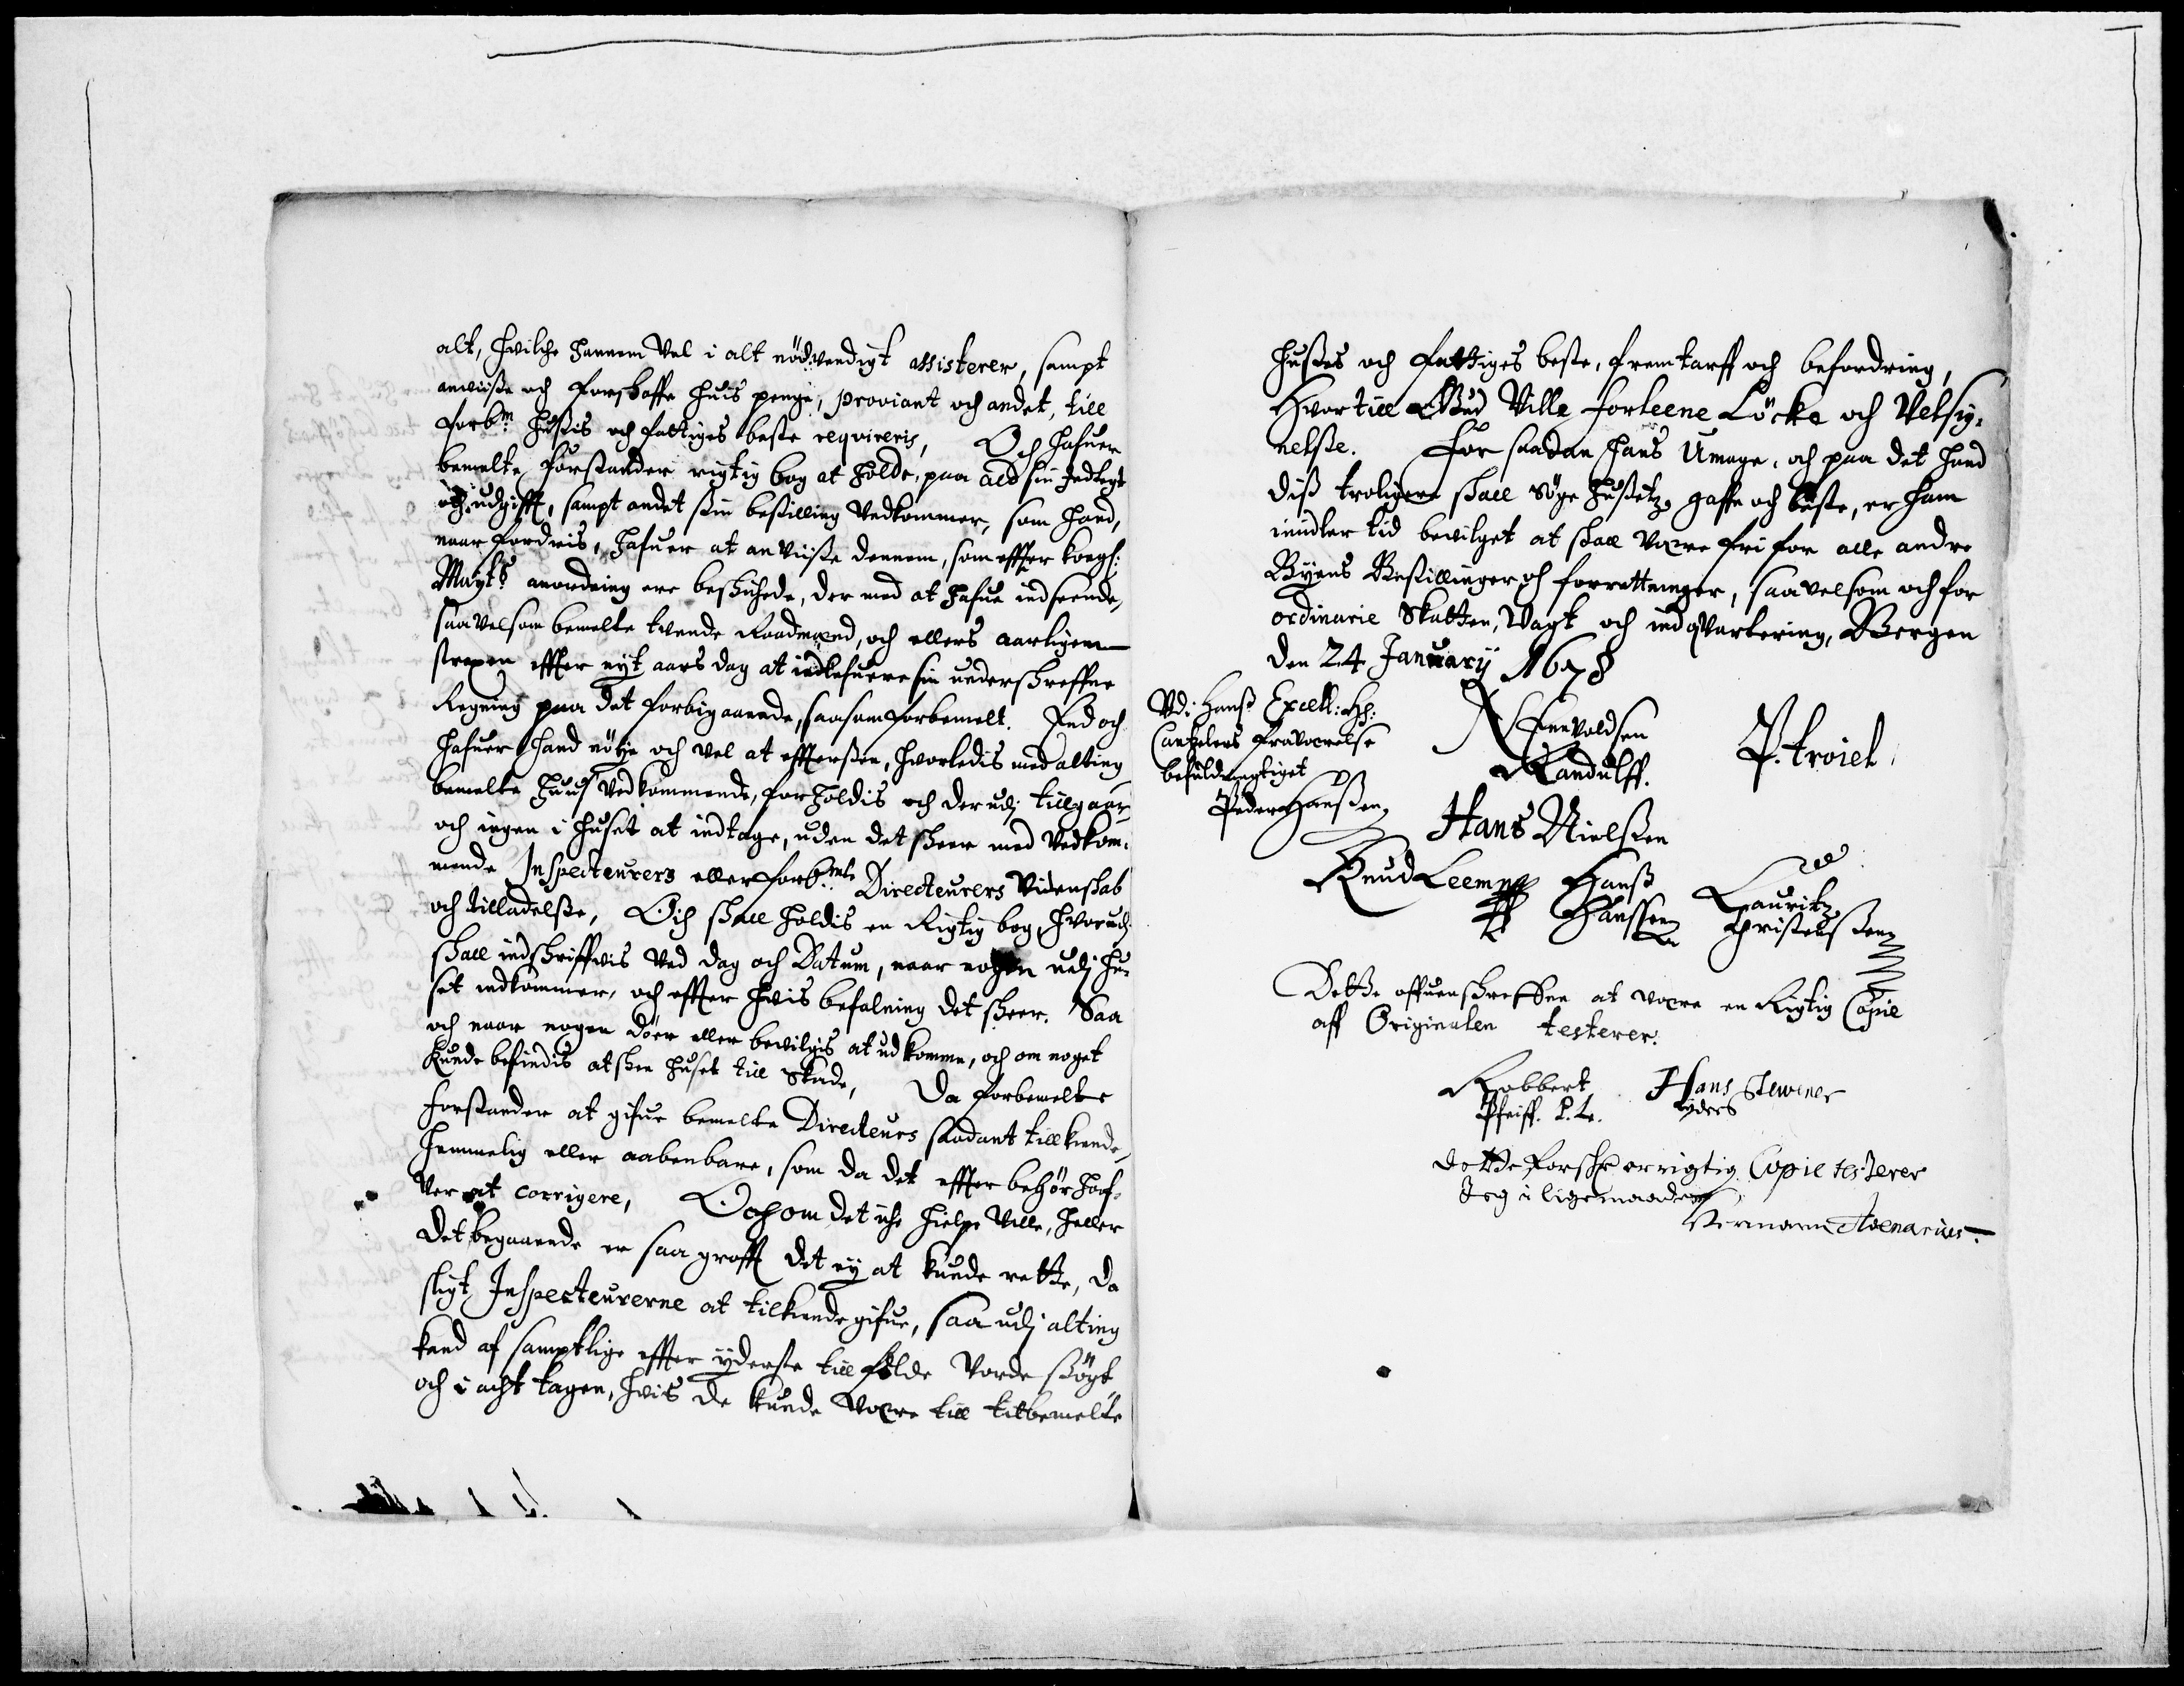 alt, hvilche hannem vel i alt nödvendigt assisterer, sampt
anviise och forskaffe huis penge, proviant och andet, till
forb:ne hußis och fattiges beste reqvireris, Och hafuer
bemelte forstander rigtig bog at holde, paa ald sin Indtegt
och udgifft, sampt andet sin bestilling vedkommer, som hand,
naar fordris, hafuer at anviise dennem, som effter Kongl:
Mayts anordning ere beskickede, der med at hafue indseende,
saavelsom bemelte tvende Raadmænd, och ellers aarligen
strxen effter nyt aars dag at indlefuere sin underschreffne
Regning paa det forbigaaende, saasom forbemelt. End och
hafuer hand nöye och vel at effterseen, hvorledis med alting
bemelte Huus vedkommende, forholdis och der udj tillgaar,
och ingen i huset at indtage, uden det skeer med vedkom-
mende Inspecteurers eller forb:mte Directeurers Videnskab
och tilladelse, Och skall holdis en Rigtig bog, hvorudj
skall indskriffvis ved dag och Datum, naar nogen udj hu-
set indkommer, och effter hvis befalning det skeer. Saa
och naar nogen döer eller bevilgis at udkomme, och om noget
kunde befindis at skee huset till skade, Da forbemelte
forstander at gifue bemelte Directeurs saadant tillkiende,
hemmelig eller aabenbare, som da det effter behör haf-
ver at corrigere, Och om det iche hielpe ville, heller
det begaaende er saa grofft det ey at kunde rette, da
sligt Inspecteurerne at tilkiende gifue, saa udj alting
kand af samptlige effter yderste till földe vorde sögt
och i acht tagen, hvis de kunde være till titbemelte
hußes och fattiges beste, fremtarff och befordring,
Hvor till Gud Ville forleene Löcke och Velsig-
nelse. For saadan hans Umage, och paa det hand
diß troligere skall söge hußetz gaffn och beste, er ham
imidler tid bevilget at skall være fri for alle andre
Byens Bestillinger och forretninger, saavelsom och for
ordinarie Skatter, Vagt och indqvartering, Bergen
den 24 January 1678
Vdi Hanß Excell: Hr:
Cantzelers fraværelse
befuldmegtiget
Peder Hanßen
N Envoldsen
Randulff.
P. troiel
Hans Nielßen
Knud Leem
Hanß
Hanssen
Lauritz
Christenßen
Dette offuenschreffne at være en Rigtig Copie
aff Originalen testerer.
Robbert
Pfeiff.
Hans Stevener
ijders
Dette forschr er rigtig Copie testerer
Jeg i ligemaade
Hermann Avenarius